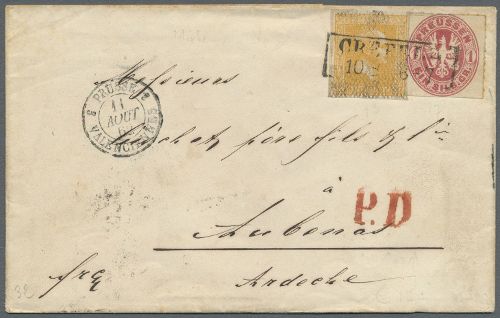 PREUSSEN
EIN SILBERGR.
PRUSSE
11
AOUT
VALENCIENNES
Messieurs
père fils & Cie
à
P.D
Aubenas
frco
Ardèche